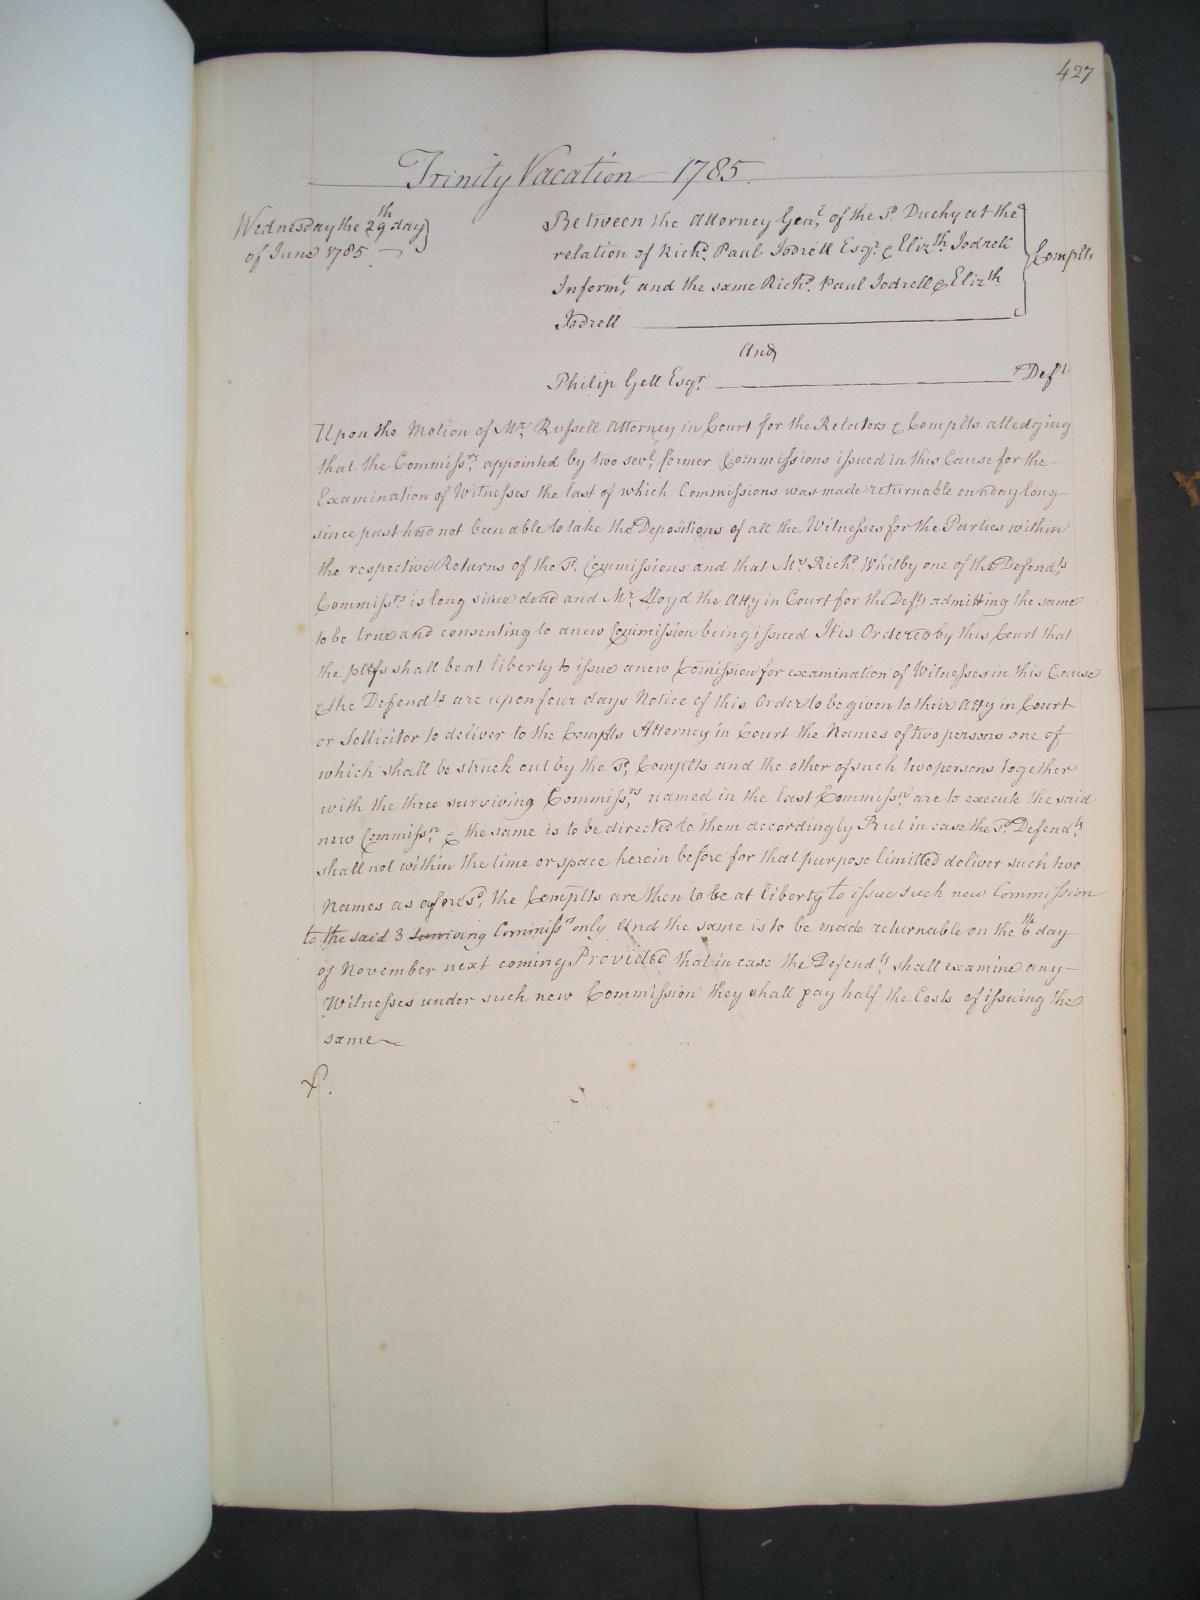 427
Trinity Vacation 1785.
Wednesday the 29th day
of June 1785
Between the Attorney Genl. of the sd. Duchy at the
relation of Richd. Paul Jodrell Esqr. & Elizth. Jodrell
Informts. and the same Richd. Paul Jodrell & Elizth
Jodrell
Complts
And
Philip Gell Esqr. Deft
Upon the Motion of Mr. Russell Attorney in Court for the Relators & Complts alledging
that the Commissrs. appointed by two sevl. former Commissions issued in this Cause for the
Examination of Witnesses the last of which Commissions was made returnable on a day long
since past had not been able to take the Depositions of all the Witnesses for the Parties within
the respective Returns of the sd. Commissions and that Mr. Richd. Whitby one of the Defendts.
Commissrs. is long since dead and Mr. Lloyd the Atty in Court for the Defts admitting the same
to be true and consenting to a new Commission being issued It is Ordered by this Court that
the pltfs shall be at liberty to issue a new Comission for examination of Witnesses in this Cause
& the Defendts are upon four days Notice of this Order to be given to their Atty in Court
or Sollicitor to deliver to the Complts Attorney in Court the Names of two persons one of
which shall be struck out by the sd. Complts and the other of such two persons together
with the three surviving Commissrs. named in the last Commissn. are to execute the said
new Commissn. & the same is to be directed to them accordingly But in case the sd. Defendts.
shall not within the time or space herein before for that purpose limitted deliver such two
Names as aforesd. the Complts are then to be at liberty to issue such new Commission
to the said 3 surviving Commissrs only And the same is to be made returnable on the 6th day
of November next coming Provided that in case the Defendts. shall examine any
Witnesses under such new Commission they shall pay half the Costs of issuing the
same